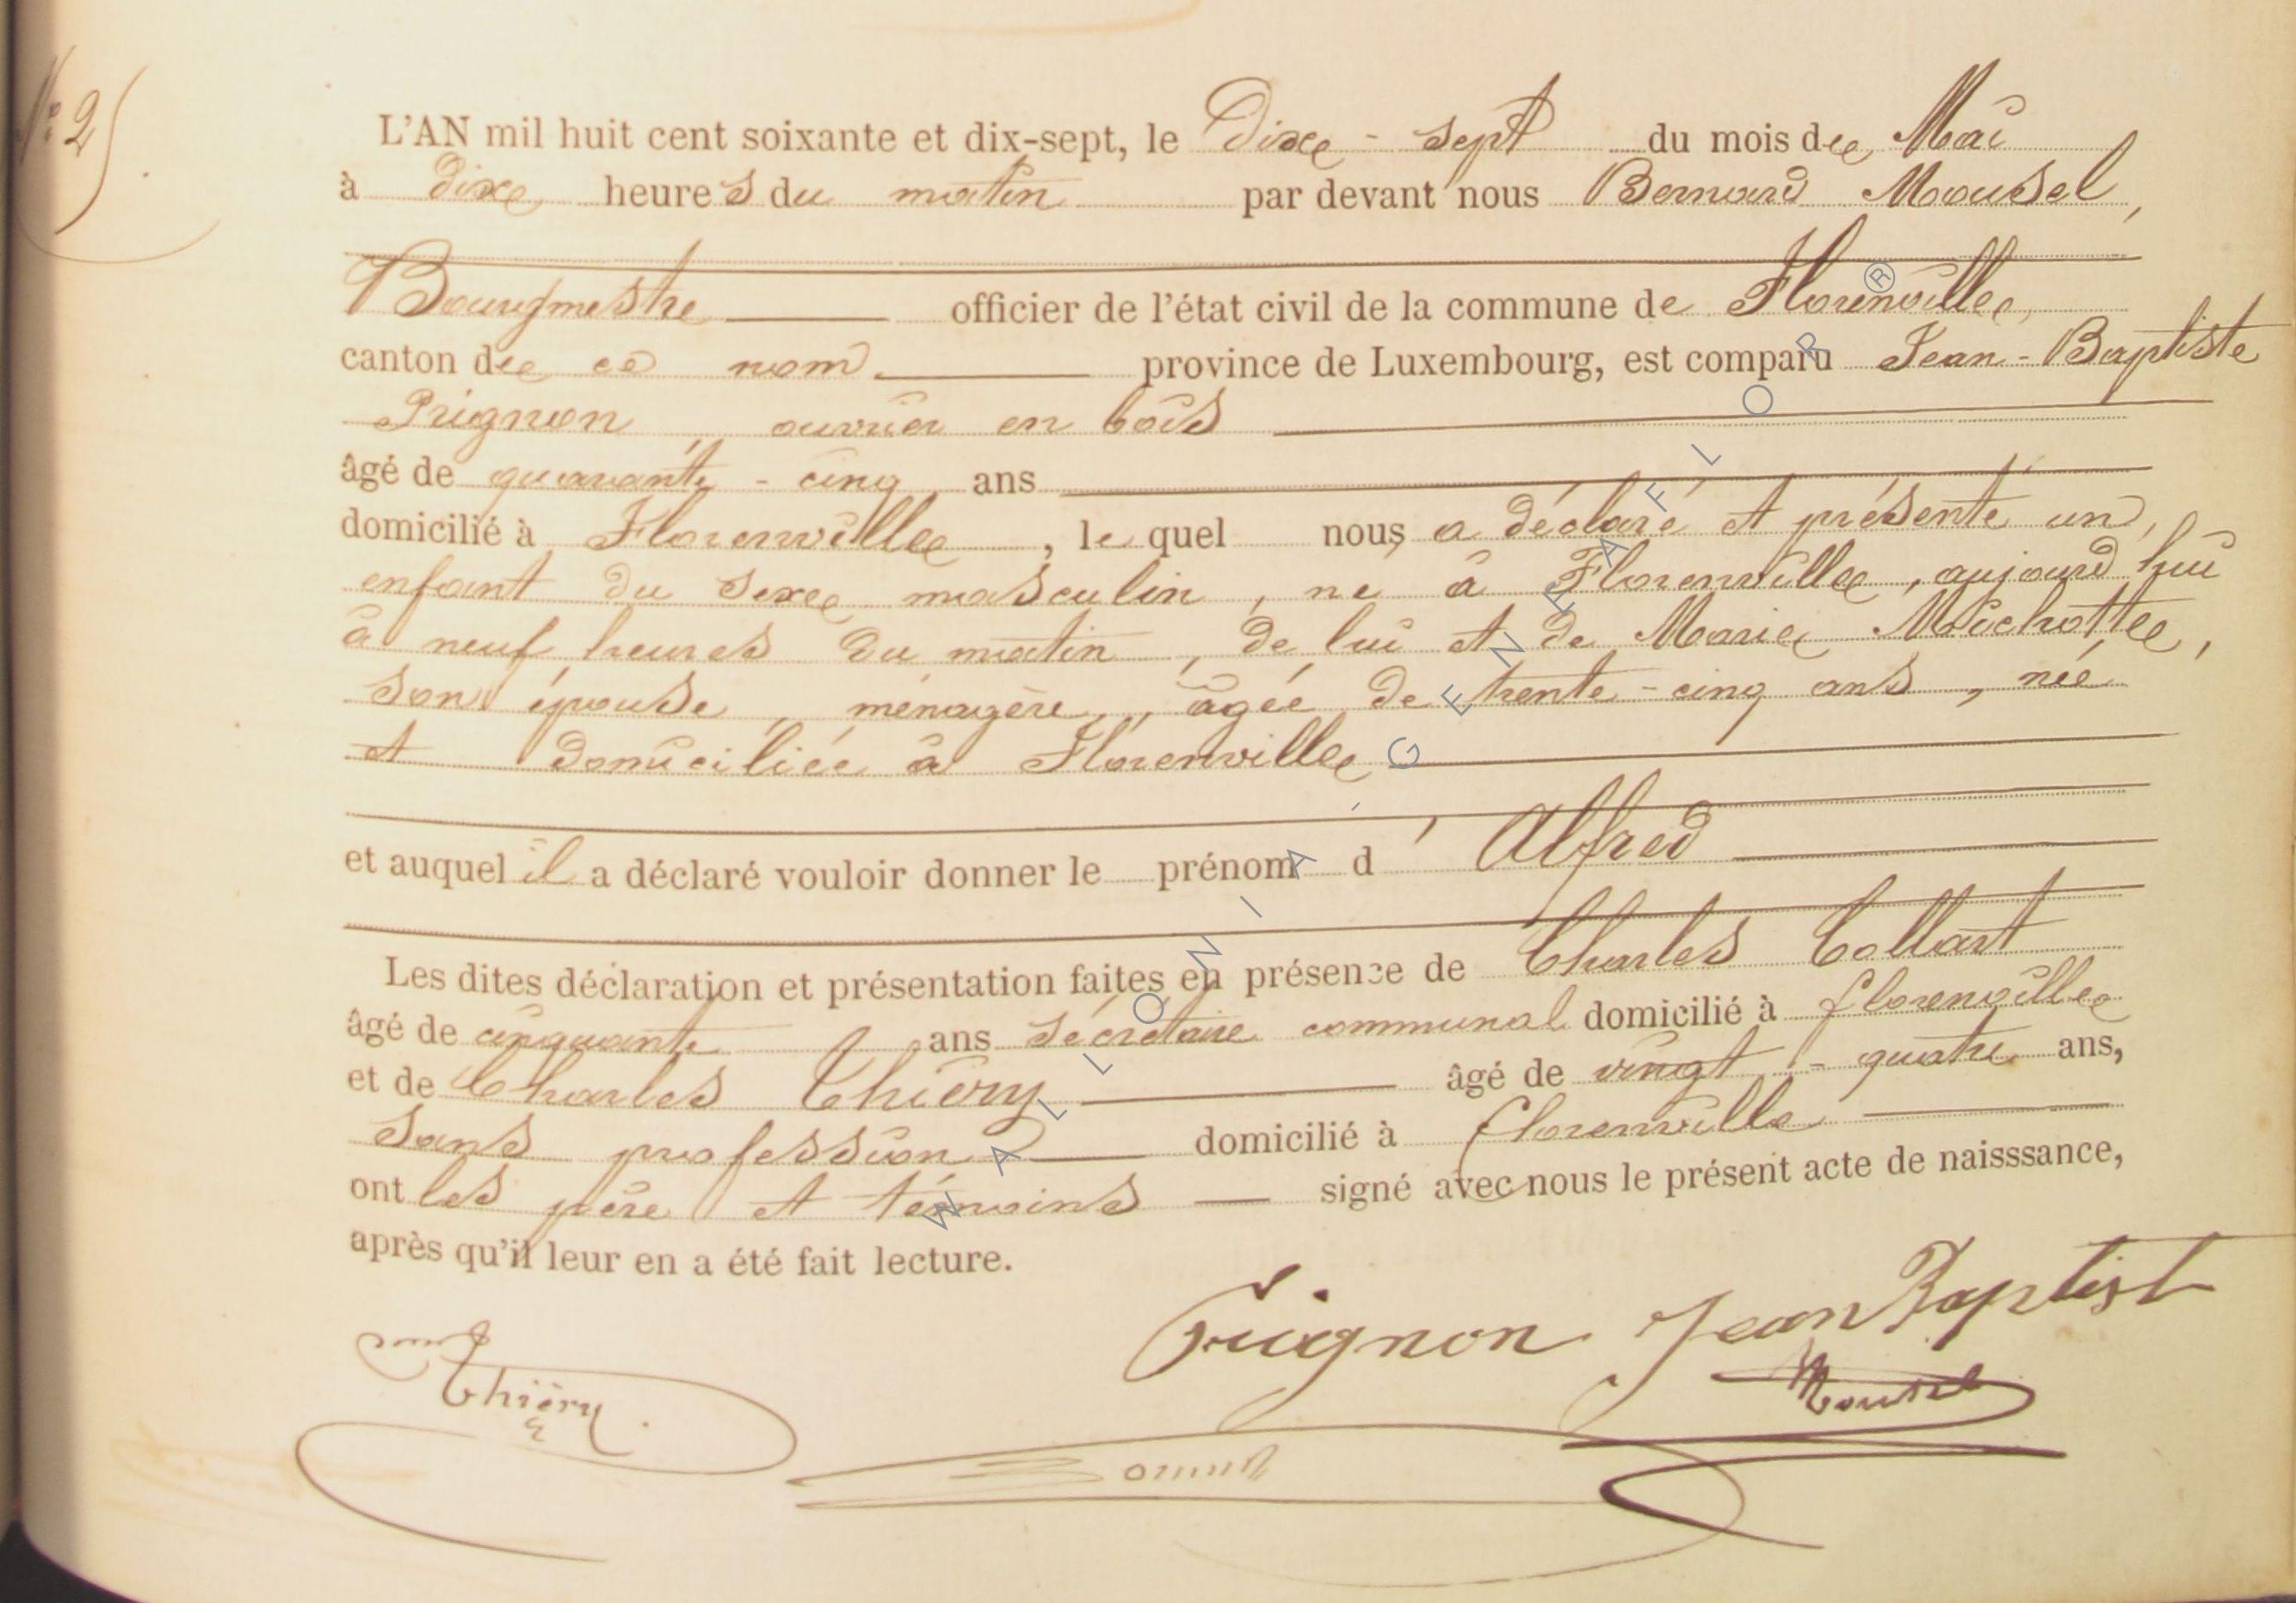 N° 25
L'AN mil huit cent soixante et dix-sept, le Dixe - sept du mois de Mai
à dixe heures du matin par devant nous Bernard Mousel,
Bourgmestre officier de l'état civil de la commune de Florenville,
canton de ce nom province de Luxembourg, est comparu Jean-Baptiste
Prignon, ouvrier en bois
âgé de quarante-cinq ans
domicilié à Florenville, lequel nous a déclaré et présenté un
enfant du sexe masculin, né à Florenville, aujourd'hui
à neuf heures du matin, de lui et de Marie Michotte,
son épouse, ménagère, âgée de trente-cinq ans, née
et domiciliée à Florenville
et auquel il a déclaré vouloir donner le prénom d'Alfred
Les dites déclaration et présentation faites en présence de Charles Collart
âgé de cinquante ans secrétaire communal domicilié à florenville
et de Charles Thiéry âgé de vingt-quatre ans,
sans profession domicilié à florenville
ont les père et témoins signé avec nous le présent acte de naisssance,
après qu'il leur en a été fait lecture.
Prignon Jean Baptist
Thiéry
Mousel
WALLONIA-GENEAFLOR®